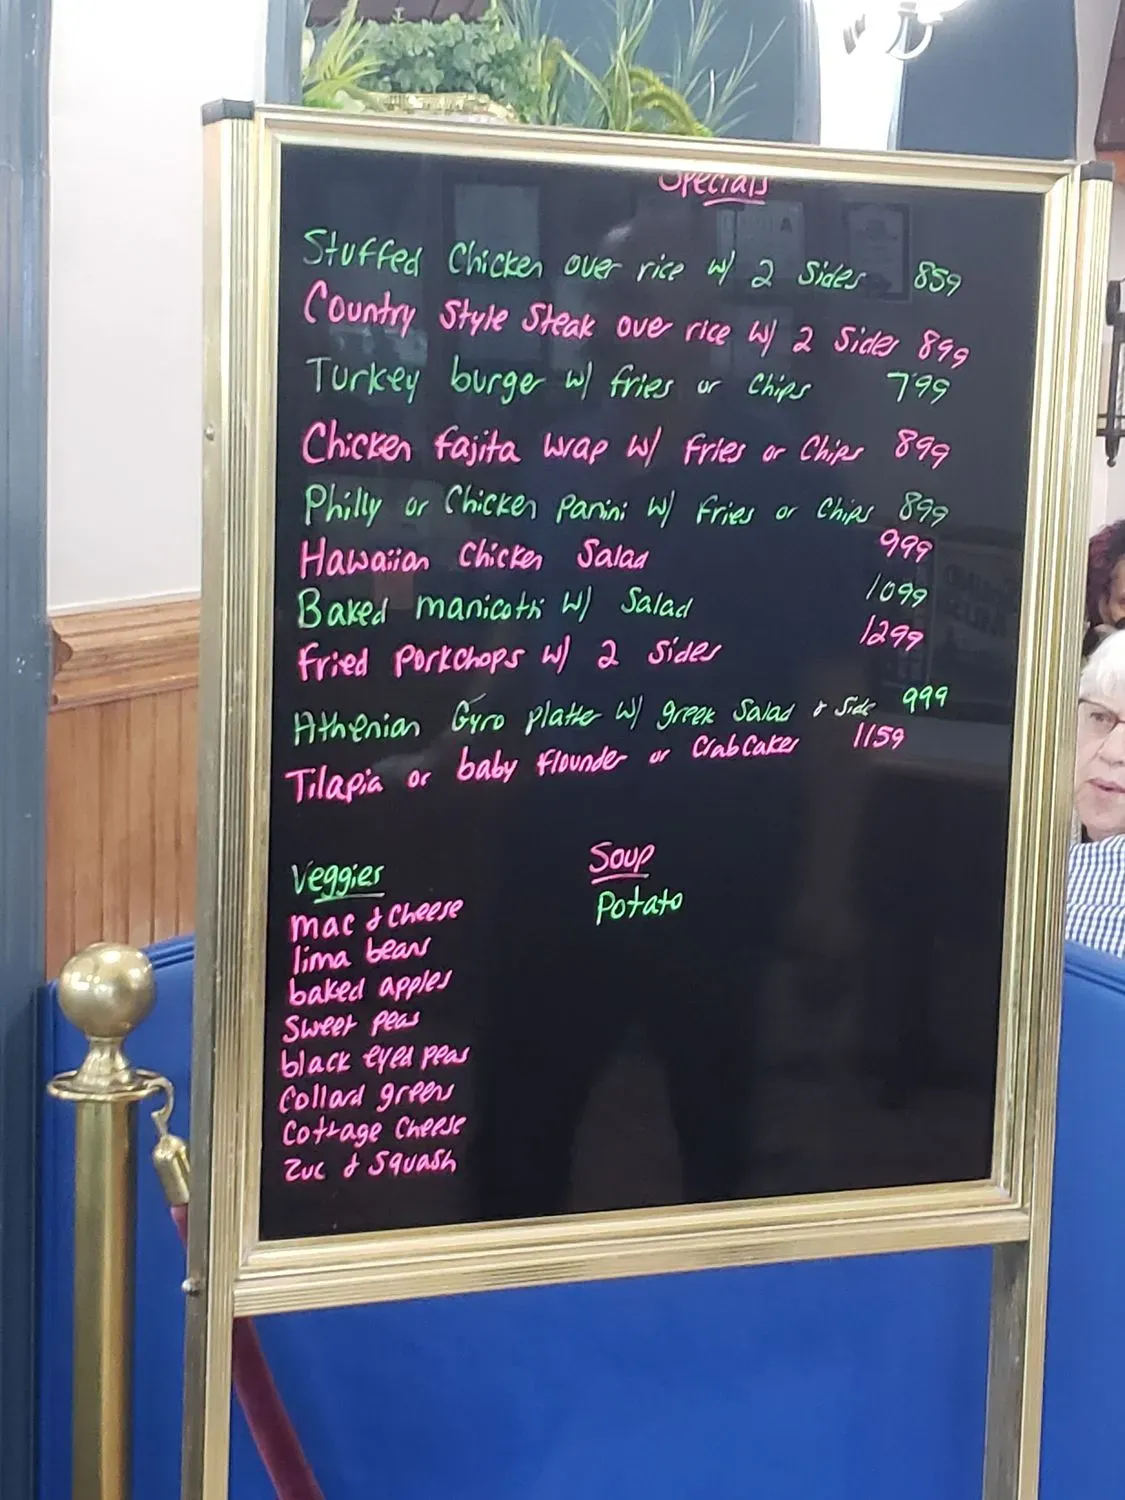 Specials
Stuffed Chicken over rice w/ 2 Sides 859
Country Style Steak over rice w/ 2 Sides 899
Turkey burger w/ fries or Chips 799
Chicken fajita wrap w/ fries or Chips 899
Philly or Chicken panini w/ fries or Chips 899
Hawaiian Chicken Salad 999
Baked manicotti w/ Salad 1099
fried porkchops w/ 2 Sides 1299
Athenian Gyro platter w/ greek Salad & Side 999
Tilapia or baby flounder or Crab Cakes 1159
Veggies
mac & Cheese
lima beans
baked apples
Sweet peas
black eyed peas
Collard greens
Cottage Cheese
Zuc & Squash
Soup
Potato